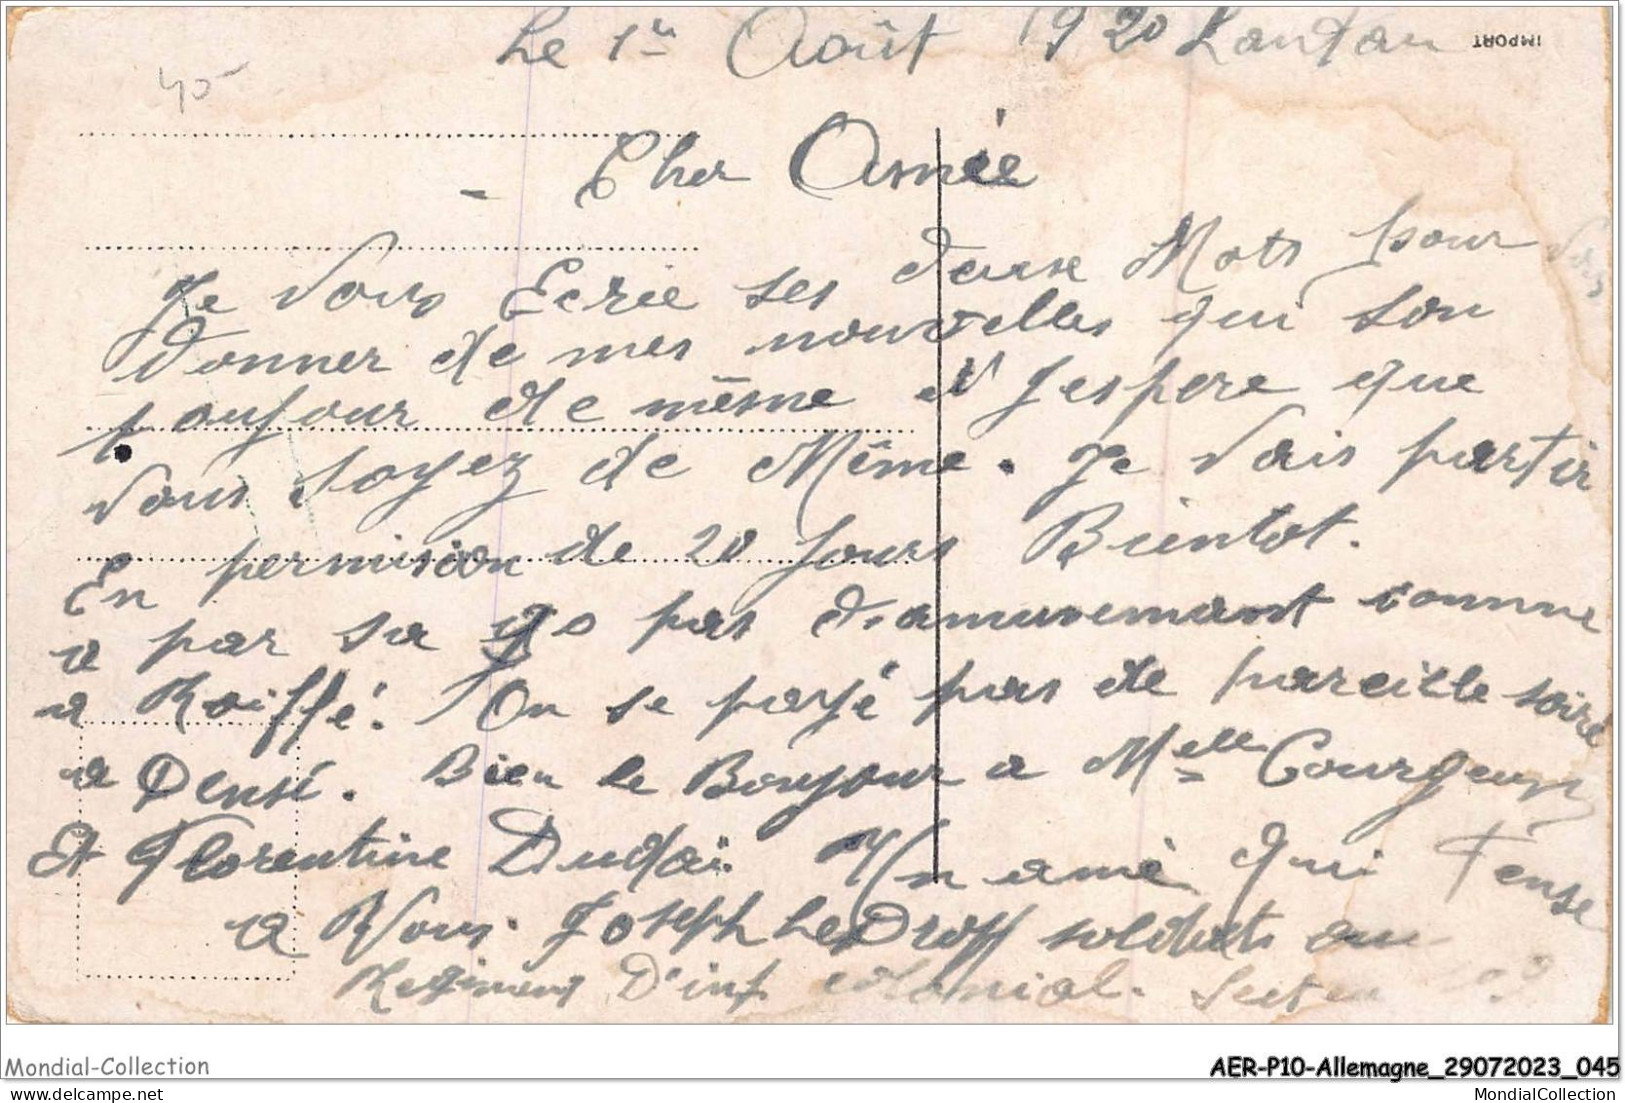 Le 1er Août 1920 Landau
IMPORT
45
Cher Amie
Je vous Ecrie ses deuse Mots pour vous
donner de mes nouvelles qui son
toujour de même et Jespere que
vous soyez de Même. Je vais partir
En permision de 20 Jours Bientot.
a par sa pas d'amusemant comme
a Roiffé. On se payé pas de pareille soiré
a Densé. Bien le Bonjour a Melle Courgeun
Et Florentine Dudoi. Un amie qui Pense
a Vous. Joseph Le Droff soldats au
Regiment D'inf colonial. Secteur
Mondial-Collection
AER-P10-Allemagne_29072023_045
delcampe.net
MondialCollection